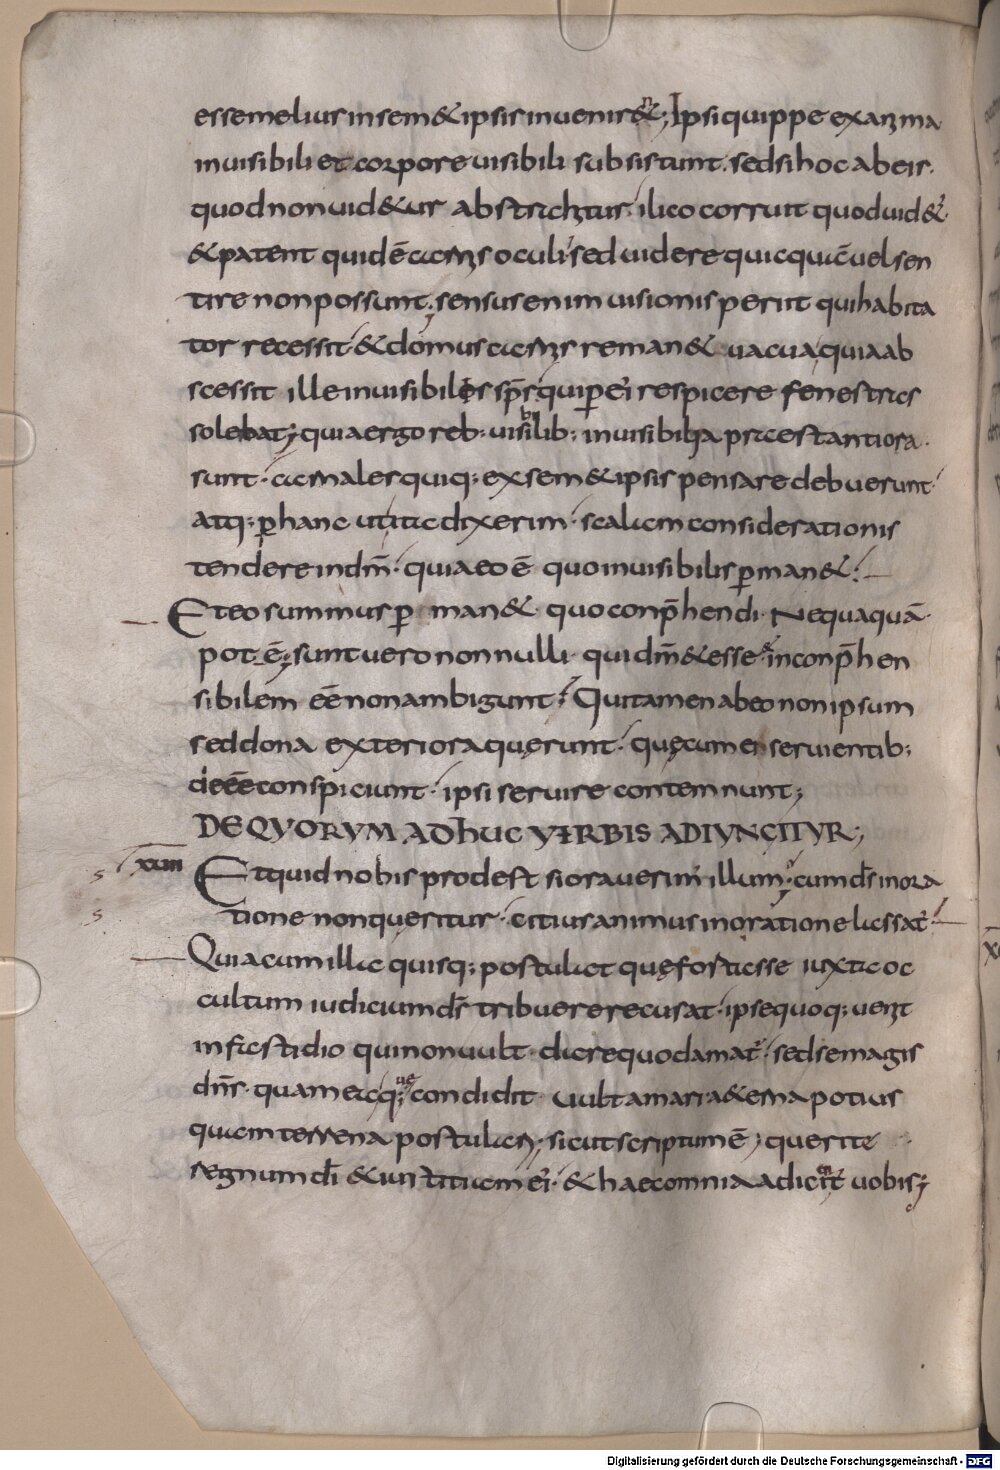 esse melius in sem&ipsis invenir&; Ipsi quippe ex anima
invisibili et corpore visibili subsistunt. sed si hoc ab eis.
quod non vid&ur abstrahitur. ilico corruit quod vid&ur
& patent quidē carnis oculi. sed videre quicquā vel sen
tire non possunt; sensus enim visionis periit quia habita
tor recessit. & domus carnis reman& vacua, quia ab
scessit ille invisibilis sps. qui per ei respicere fenestras
solebat; quia ergo reb: visibilib: invisibilia prestantiora.
sunt. carnales quiq: ex sem&ipsis pensare debuerunt.
atq: p hanc ut ita dixerim. scalam considerationis
tendere in dm. quia eo ē quo invisibilis pman&.
Et eo summus p man& quo conphendi. Nequaquā.
pot ē; sunt vero nonnulli. qui dm & esse & inconphen
sibilem eē non ambigunt. Qui tamen ab eo non ipsum
sed dona exteriora querunt. quę cum ei servientib:
deeē conspiciunt. ipsi servire contemnunt;
DE QUORUM ADHUC VERBIS ADIUNGITUR;
xviii Et quid nobis prodest si oraverim illum; cum ds in ora
tione non queritur. citius animus in oratione lassat
Quia cum illa quisq: postulat quę fortasse iuxta oc
cultum iudicium di tribuere recusat. ipse quoq: venit
in fastidio qui non vult dare quod amat. sed se magis
dns. quam ea quę condidit vult amari aeterna potius
quam terrena postulari; sicut scriptum ē; querite
regnum di & iustitiam ei. & haec omnia adicient vobis;
Digitalisierung gefördert durch die Deutsche Forschungsgemeinschaft - DFG